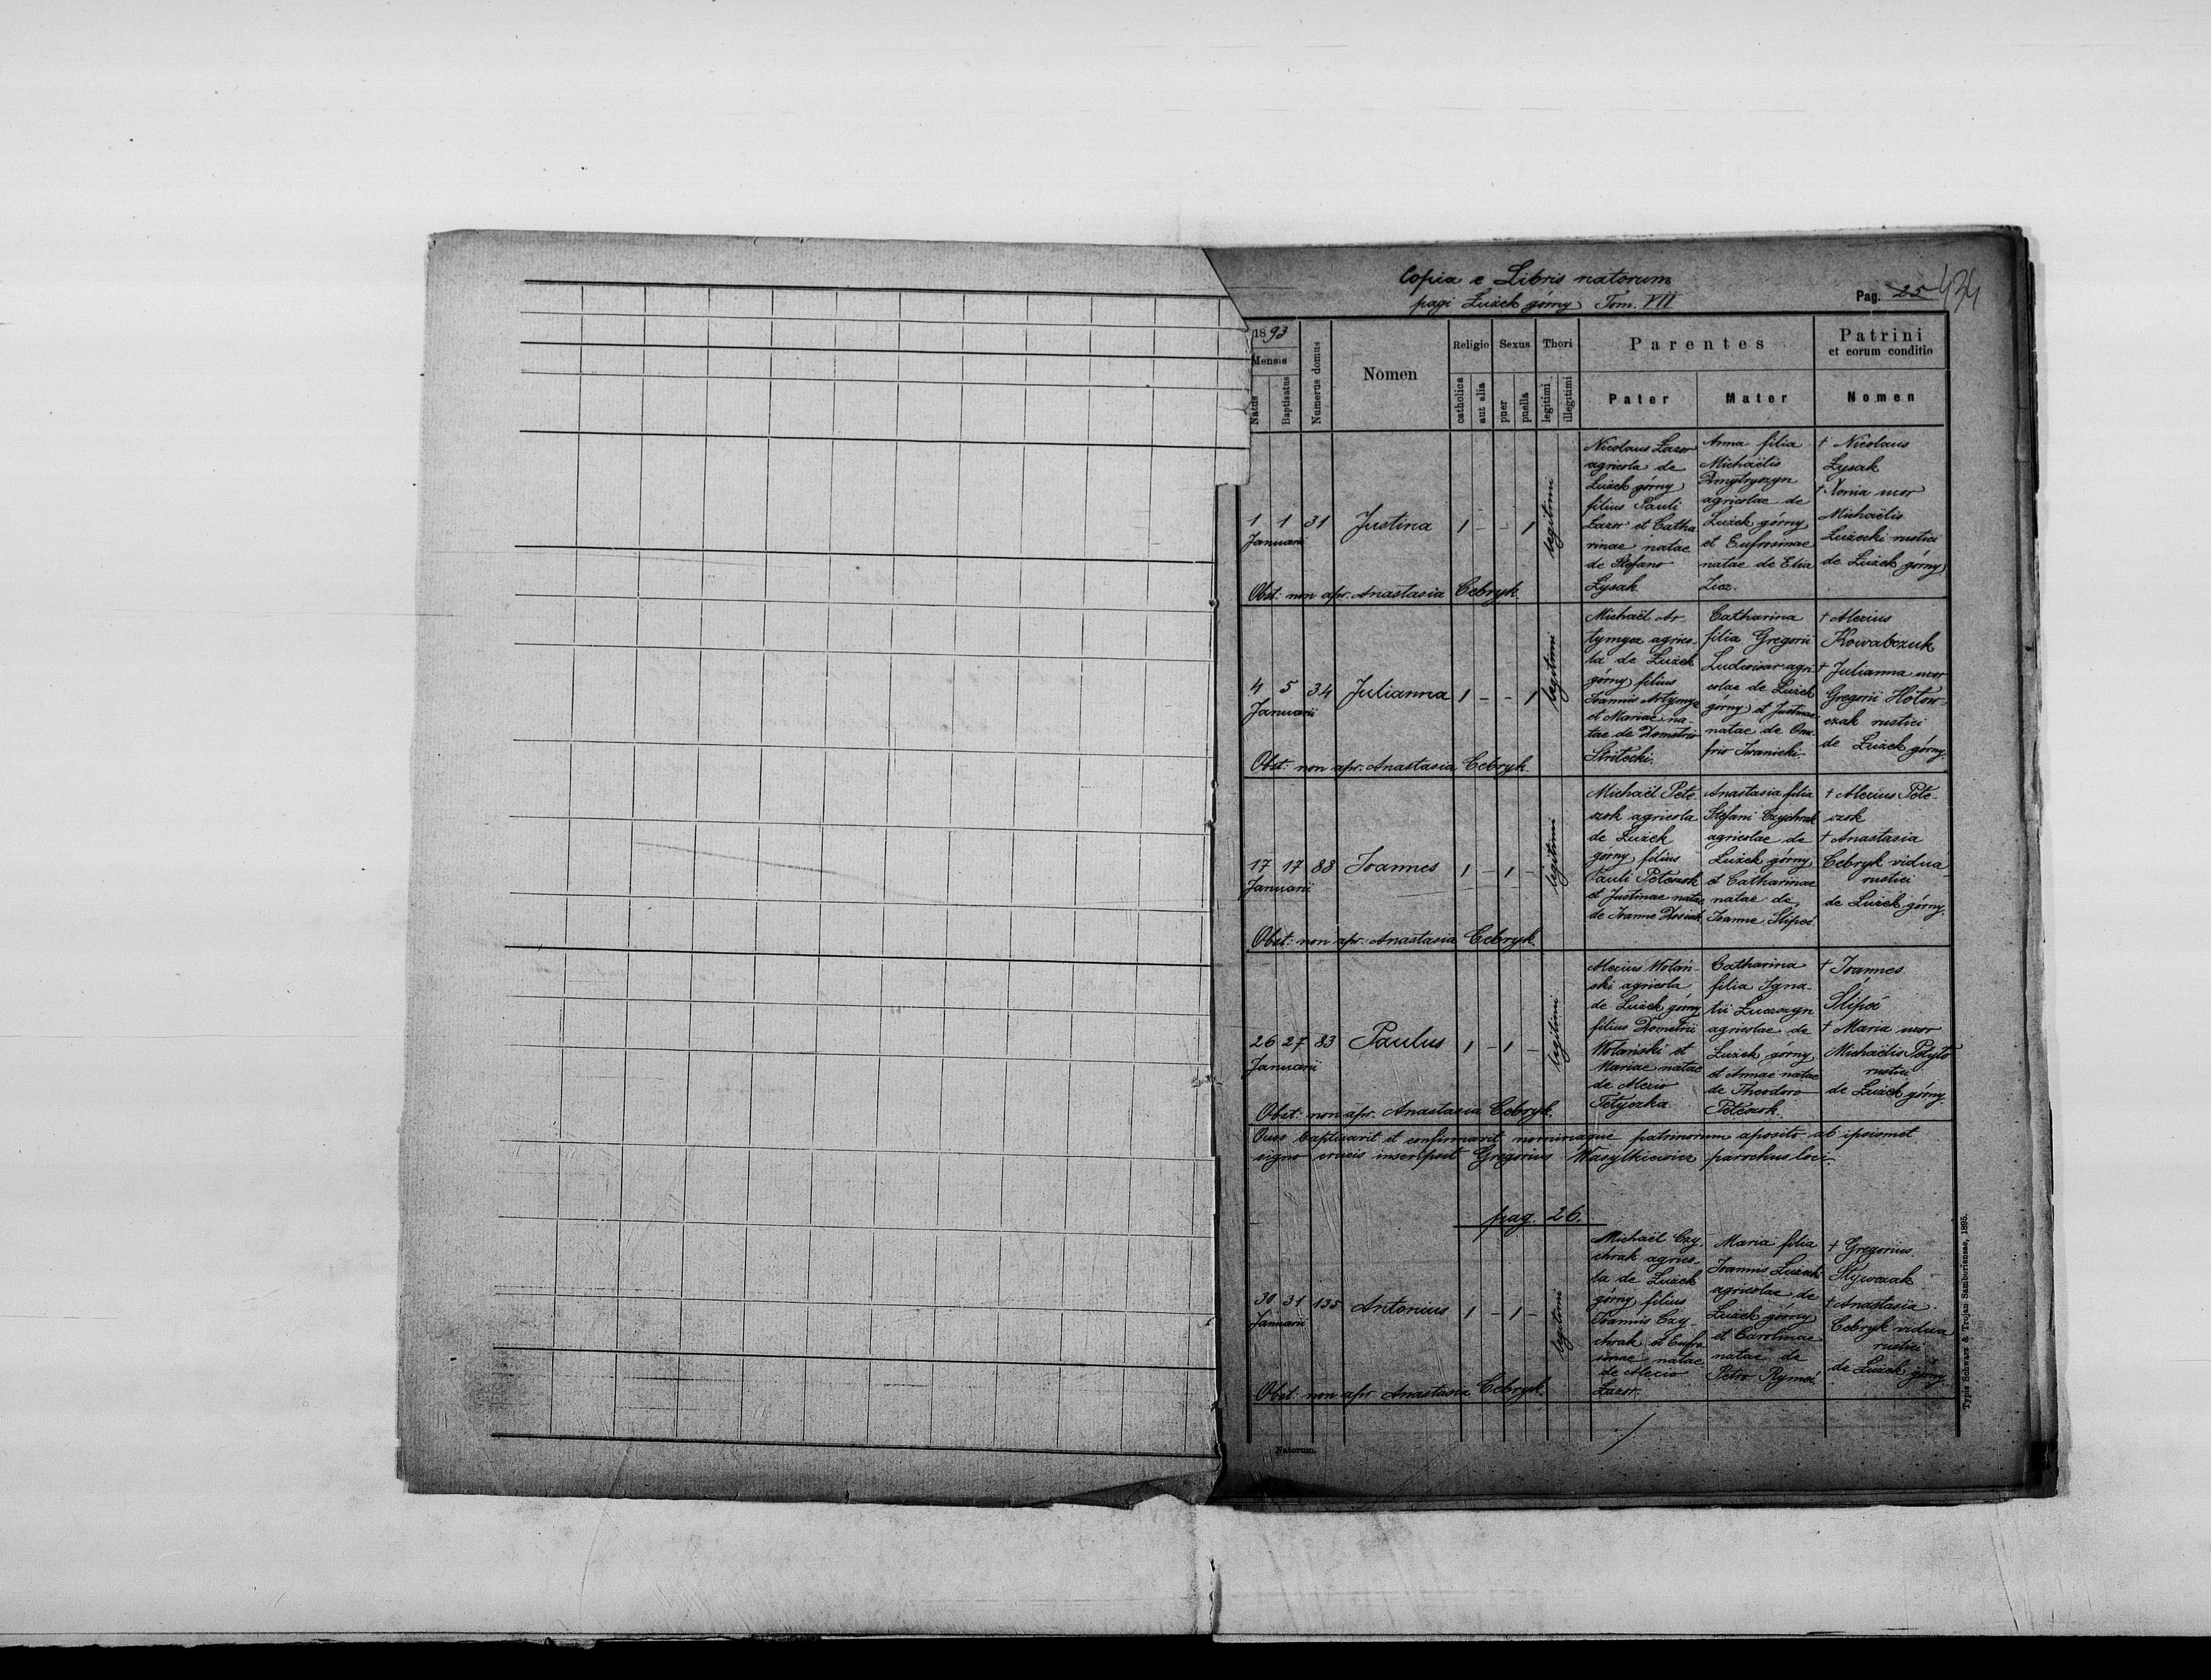 Copia e Libris natorum
pagi Łużek górny Tom. VII
Pag. 25 434
1893
Mensis
Natus
Baptisatus
Numerus domus
Nomen
Religio
catholica
aut alia
Sexus
puer
puella
Thori
legitimi
illegitimi
Parentes
Pater
Mater
Patrini
et eorum conditio
Nomen
1 1 31 Justina 1 - - 1
Januarii
legitimi
Nicolaus Łazor
agricola de
Łużek górny
filius Pauli
Łazor et Catha
rinae natae
de Stefano
Łysak.
Anna filia
Michaëlis
Dmytryszyn
agricolae de
Łużek górny
et Eufrosinae
natae de Elia
Zicz.
† Nicolaus
Łysak
† Xenia uxor
Michaëlis
Łużecki rustici
de Łużek górny
Obst: non apr. Anastasia Cebryk.
4 5 34 Julianna 1 - - 1
Januarii
legitimi
Michaël Ar
tymycz agrico-
la de Łużek
górny filius
Ioannis Artymycz
et Mariae na-
tae de Demetrio
Stritecki.
Catharina
filia Gregorii
agri
colae de Łużek
górny et Justinae
natae de Onu
frio Iwanicki.
† Alexius
Kowalczuk
† Julianna uxor
Gregorii Hołow
czak rustici
de Łużek górny.
Obst: non apr. Anastasia Cebryk.
17 17 88 Ioannes 1 - 1 -
Januarii
legitimi
Michaël Pete-
szok agricola
de Łużek
górny filius
Pauli Peteszok
et Justinae natae
de Ioanne
Anastasia filia
Stefani Czychrak
agricolae de
Łużek górny
et Catharinae
natae de
Ioanne Slipeć.
† Alexius Pete-
szok
† Anastasia
Cebryk vidua
rustici
de Łużek górny.
Obst: non apr. Anastasia Cebryk.
26 27 83 Paulus 1 - 1 -
Januarii
legitimi
Alexius Wolań-
ski agricola
de Łużek górny
filius Demetrii
Wolański et
Mariae natae
de Alexio
Petyczka.
Catharina
filia Igna-
tii Łuczszyn
agricolae de
Łużek górny
et Annae natae
de Theodoro
Peteszok.
† Ioannes
Slipeć
† Maria uxor
Michaëlis Potyto
rustici
de Łużek górny.
Obst: non apr. Anastasia Cebryk.
Quos baptisavit et confirmavit nominaque patrinorum aposito ab ipsismet
signo crucis inscripsit Gregorius Wasylkiewicz parochus loci.
pag. 26.
30 31 135 Antonius 1 - 1 -
Januarii
legitimi
Michaël Czy
chrak agrico-
la de Łużek
górny filius
Ioannis Czy-
chrak et Eufro
sinae natae
de Alexio
Łazor.
Maria filia
Ioannis Łużecki
agricolae de
Łużek górny
et Carolinae
natae de
Petro Rymeć.
† Gregorius
Styweczak
† Anastasia
Cebryk vidua
rustici
de Łużek górny
Obst: non apr. Anastasia Cebryk.
Natorum.
Typis Schwarz & Trojan Samboriensae, 1895.